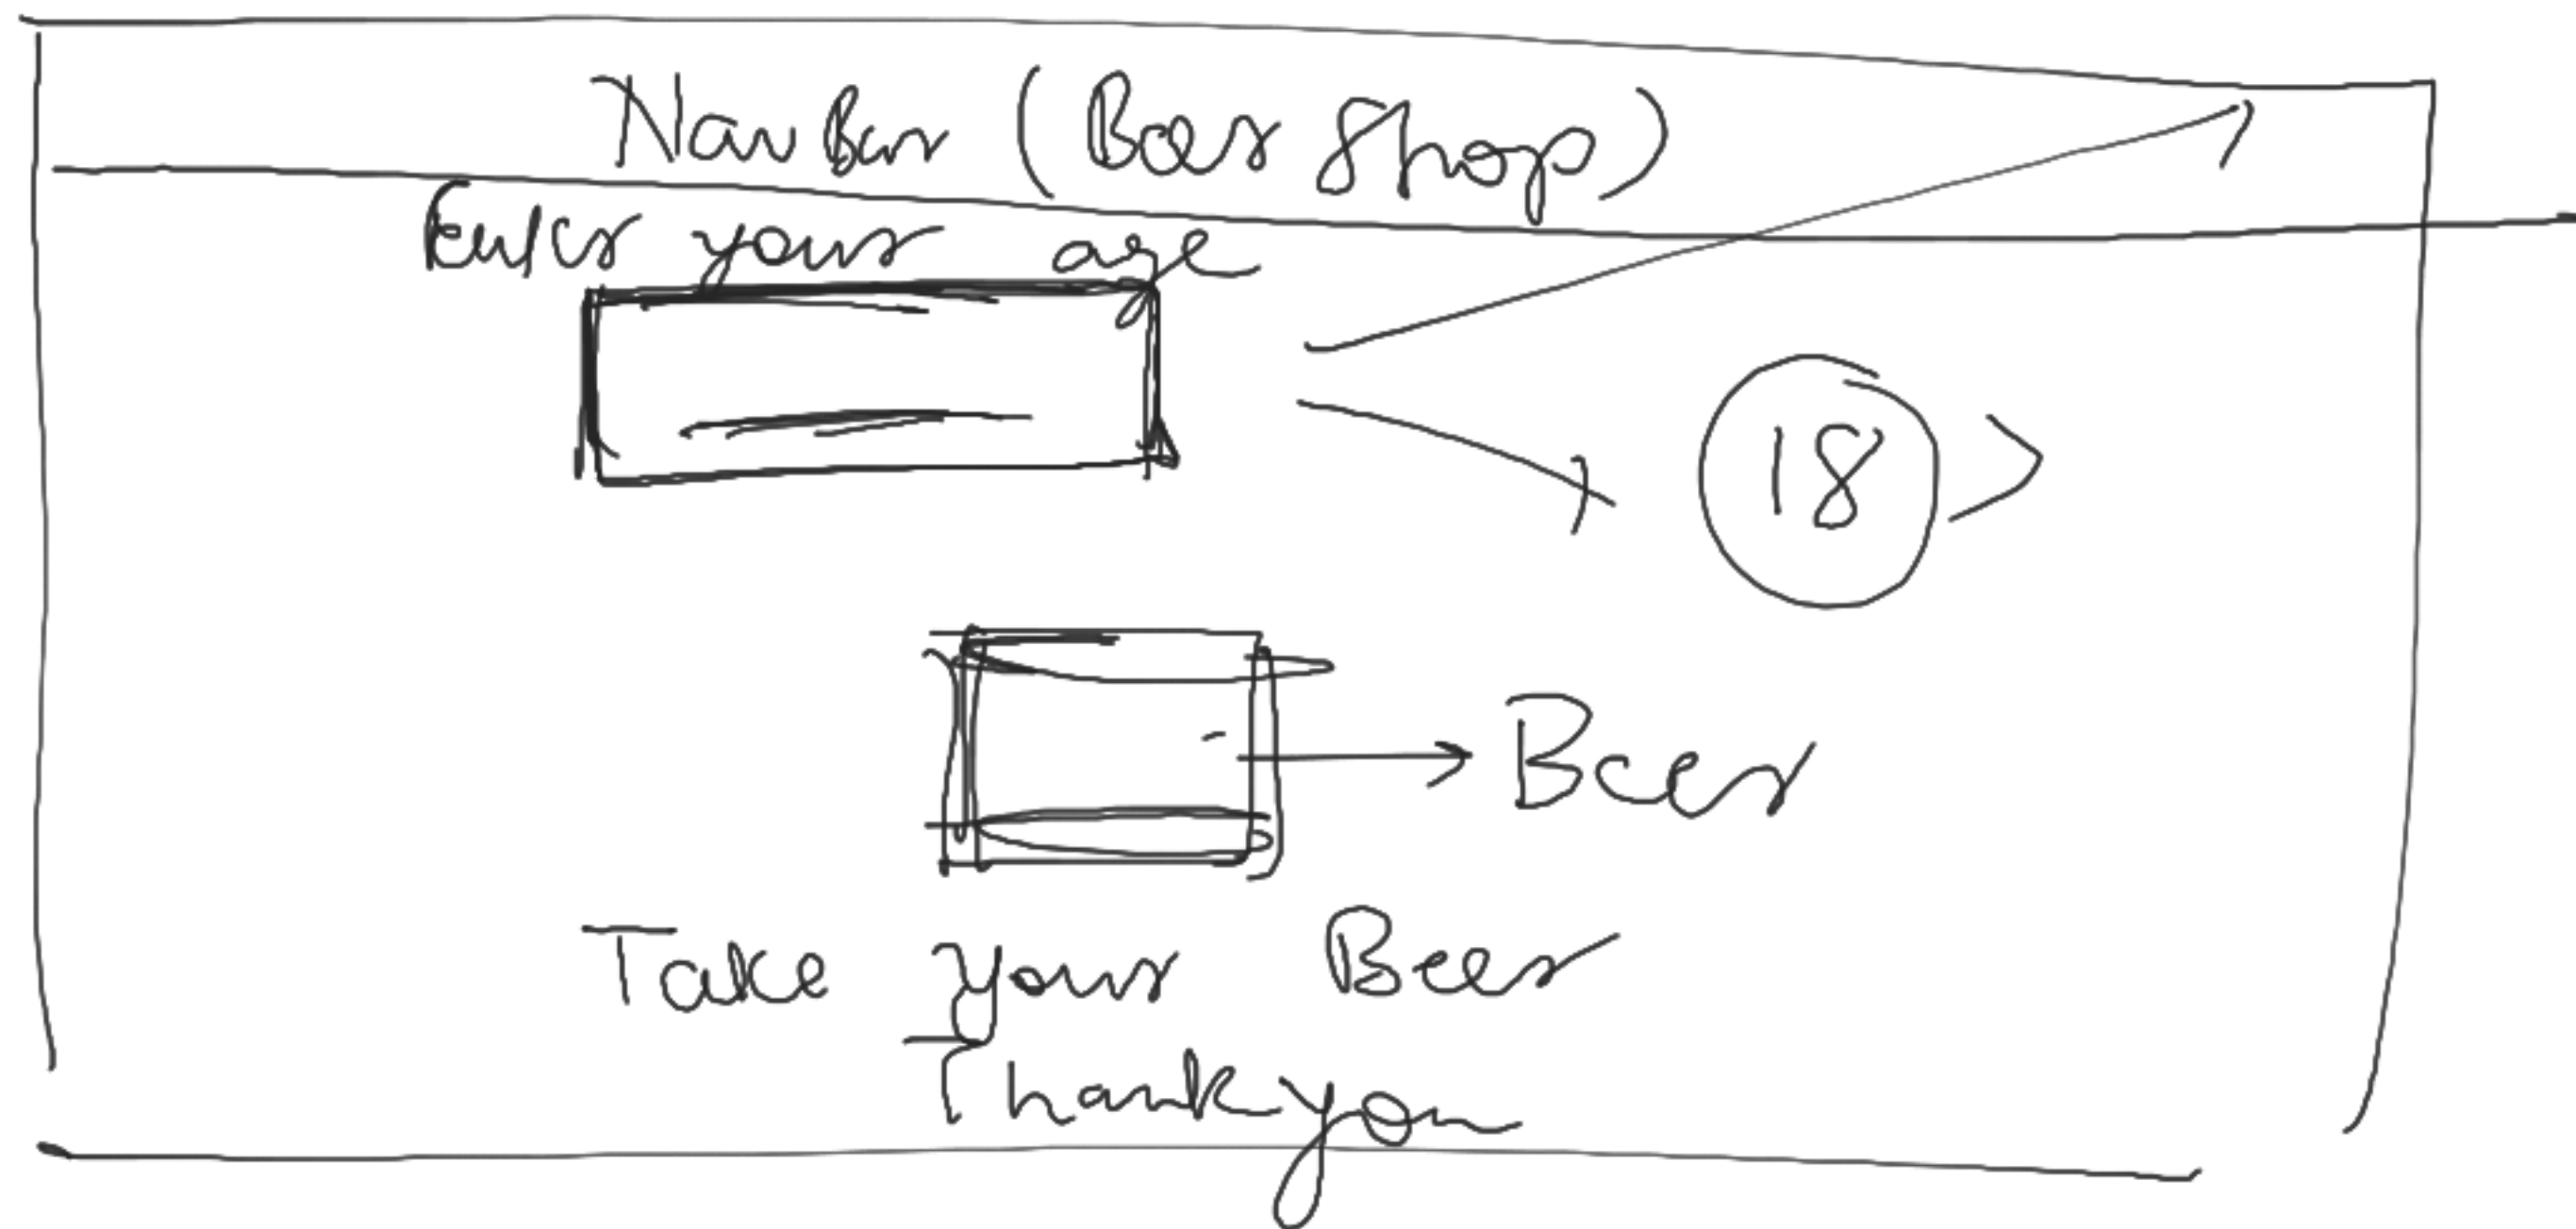 NavBar (Beer Shop)
Enter your age
18 >
Beer
Take your Beer
Thankyou